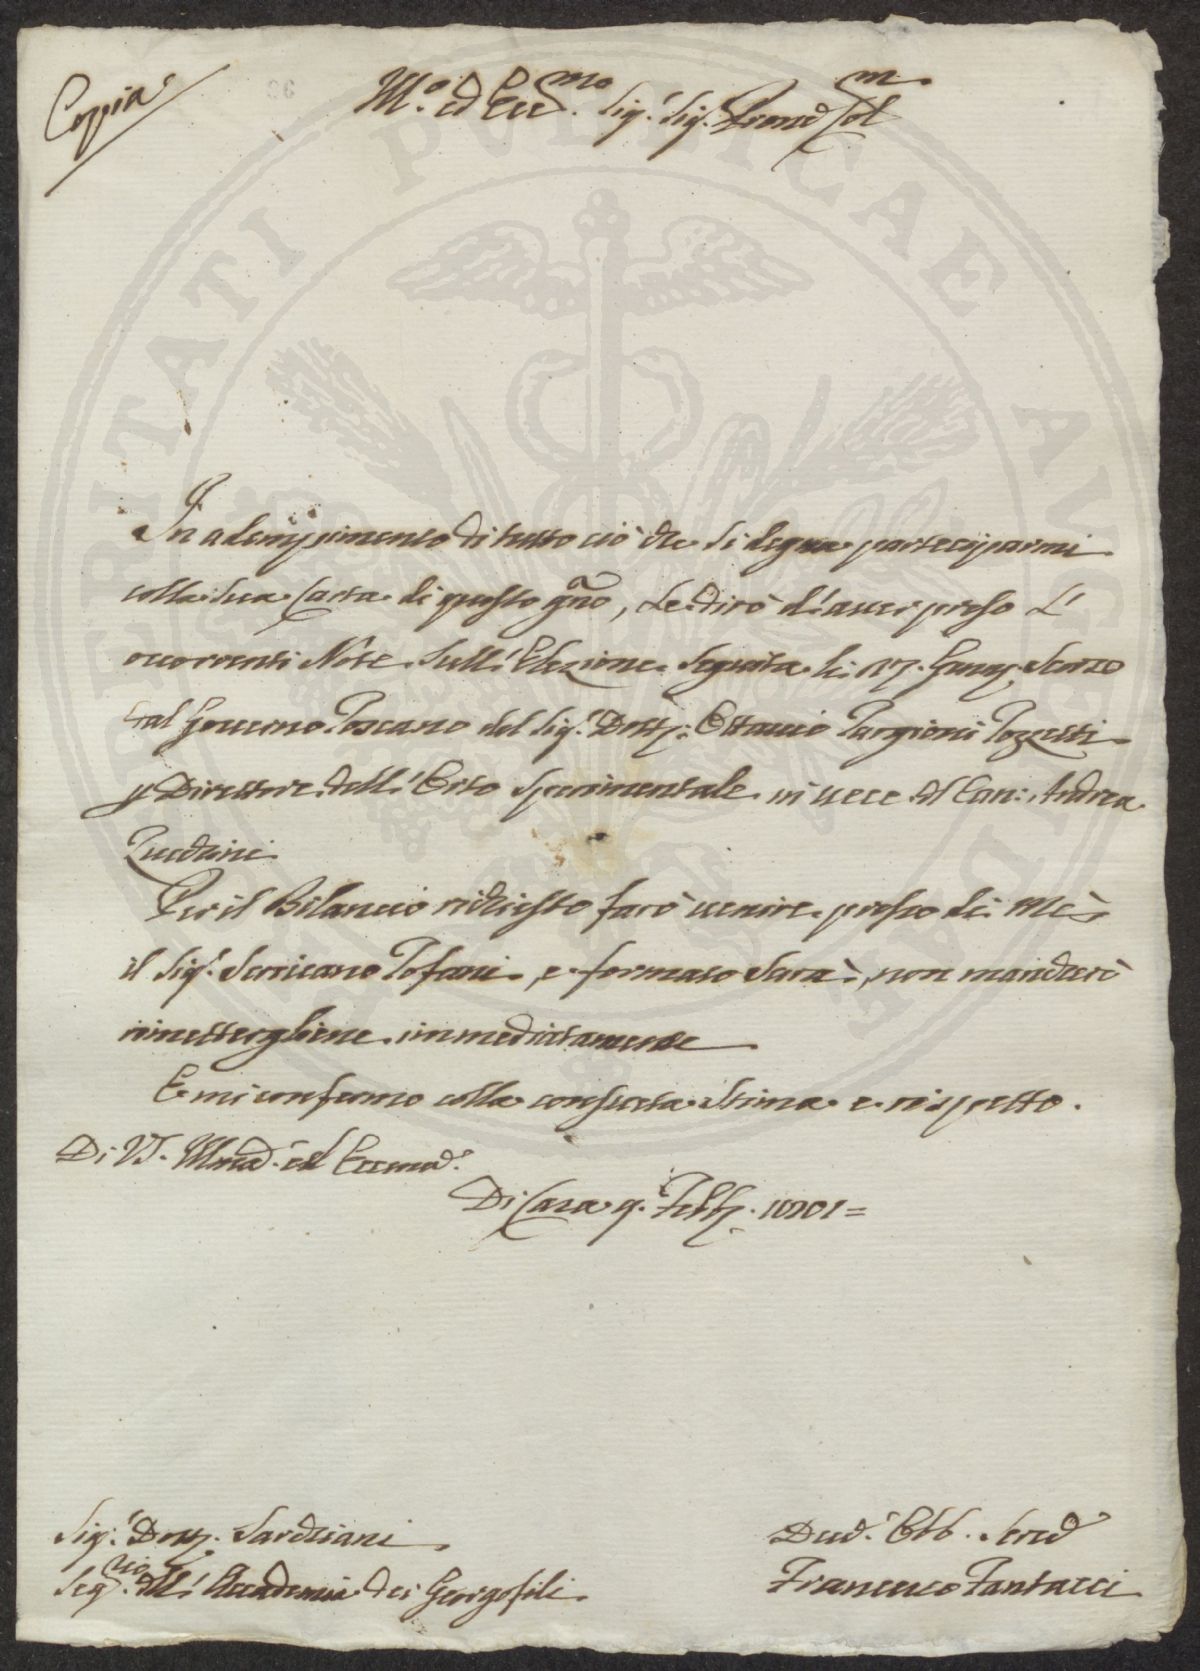 Copia
Ill.o ed Ecc.mo Sig.r Sig.r Pron.e Col.mo
In adempimento di tutto ciò che si degna parteciparmi
colla sua Carta di questo gno, Le dirò d'aver preso l'
occorrenti Note sull'Elezione seguita li 27. Genn.
dal Governo Toscano del Sig.r Dott. Ottavio Targioni Tozzetti
p Direttore dell'Orto sperimentale in vece del Can: Andrea
Zucchini
Per il Bilancio richiesto farò venire presso di Me
il Sig.r Tofani, e formato sarà, non mancherò
rimettergliene immediatamente
E mi confermo colla consueta stima e rispetto.
Di VS. Ill.ma ed Ecc.ma
Di Casa 9. Febb. 1801=
Sig.r Dott. Sarchiani
Seg.rio dell'Accademia dei Georgofili
Dev.o Obb. Serv.e
Francesco Fantacci
PROSPERITATI PUBLICAE AUGENDAE